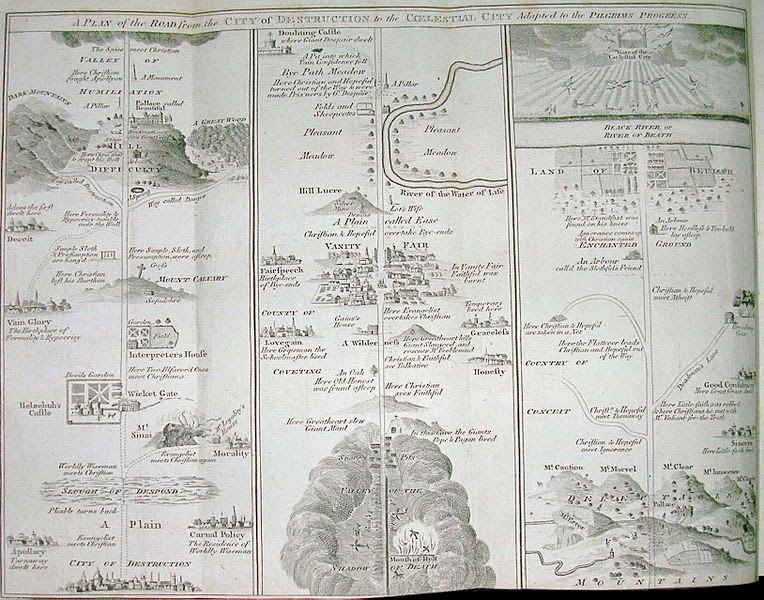 A PLAN of the ROAD from the CITY of DESTRUCTION to the CŒLESTIAL CITY Adapted to the PILGRIMS PROGRESS.
The Spies meet Christian
VALLEY OF
Here Christian
fought Apollyon
A Monument
HUMILIATION
DARK MOUNTAINS
A Pillar
Pallace called
Beautiful
A GREAT WOOD
HILL
DIFFICULTY
way called Destruction
A Spring
Way called Danger
Adam the first
dwelt here
Here Formality &
Hypocrisy tumbled
over the Wall
Deceit
Simple Sloth
& Presumption
are hang'd
Here Simple, Sloth, and
Presumption, were asleep
Here Christian
left his Burthen
Cross
MOUNT CALVARY
Sepulchre
Vain Glory
The Birthplace of
Formality & Hypocrisy
Garden
Field
Interpreters House
Here Two Ill favour'd Ones
meet Christiana
Devils Garden
Belzebub's
Castle
Wicket Gate
Mt.
Sinai
Mr. Legality's
House
Evangelist
meets Christian again
Morality
Worldly Wiseman
meets Christian
SLOUGH OF DESPOND
Pliable turns back
A Plain
Carnal Policy
The Residence of
Worldly Wiseman
Evangelist
meets Christian
Apostacy
Turnaway
dwelt here
CITY OF DESTRUCTION
Doubting Castle
where Giant Despair dwelt
A Pit into which
Vain Confidence fell
Bye Path Meadow
Here Christian and Hopeful
turned out of the Way & were
made Pris'ners by Gt. Despair
A Pillar
Folds and
Sheepcotes
Pleasant
Meadow
Pleasant
Meadow
River of the Water of Life
Hill Lucre
Silver
Mine
Demas
Lot's Wife
A Plain called Ease
Christian & Hopeful overtake Bye-ends
VANITY FAIR
Fairspeech
Birthplace
of Bye-ends
In Vanity Fair
Faithful was
burnt
COUNTY OF
Here Evangelist
overtakes Christian
Temporary
lived here
Gaius's
House
Graceless
Lovegain
Here Gripeman the
Schoolmaster lived
A Wilderness
Here Greatheart kills
Giant Slaygood, and
rescues Mr. Feeblemind
Christian & Faithful
see Talkative
Honesty
COVETING
An Oak
Here Old Honest
was found asleep
Here Christian
sees Faithful
Here Greatheart slew
Giant Maul
In this Cave the Giants
Pope & Pagan lived
Snares
Pits
VALLEY OF THE
Mouth of Hell
SHADOW OF DEATH
Gate of the
Cœlestial City
BLACK RIVER or
RIVER OF DEATH
LAND OF BEULAH
Here Mr. Standfast was
found on his knees
An Arbour
Here Heedless & Too-bold
lay asleep
Ignorance comes up
with Christian again
ENCHANTED GROUND
An Arbour
call'd the Slothful's Friend
Christian & Hopeful
meet Atheist
Here Christian & Hopeful
are taken in a Net
Here the Flatterer leads
Christian and Hopeful out
of the Way
COUNTRY OF
Deadman's Lane
Good Confidence
Here Great Grace dwelt
Here Little-faith was robbed
& here Christiana &c. met with
Mr. Valiant-for-the-Truth
CONCEIT
Christn. & Hopeful
meet Turnaway
Sincere
Here Little-faith lived
Christian & Hopeful
meet Ignorance
Mt. Caution
Mt. Marvel
Mt. Clear
Mt. Innocence
DELECTABLE
Mt. Error
Pallace
MOUNTAINS